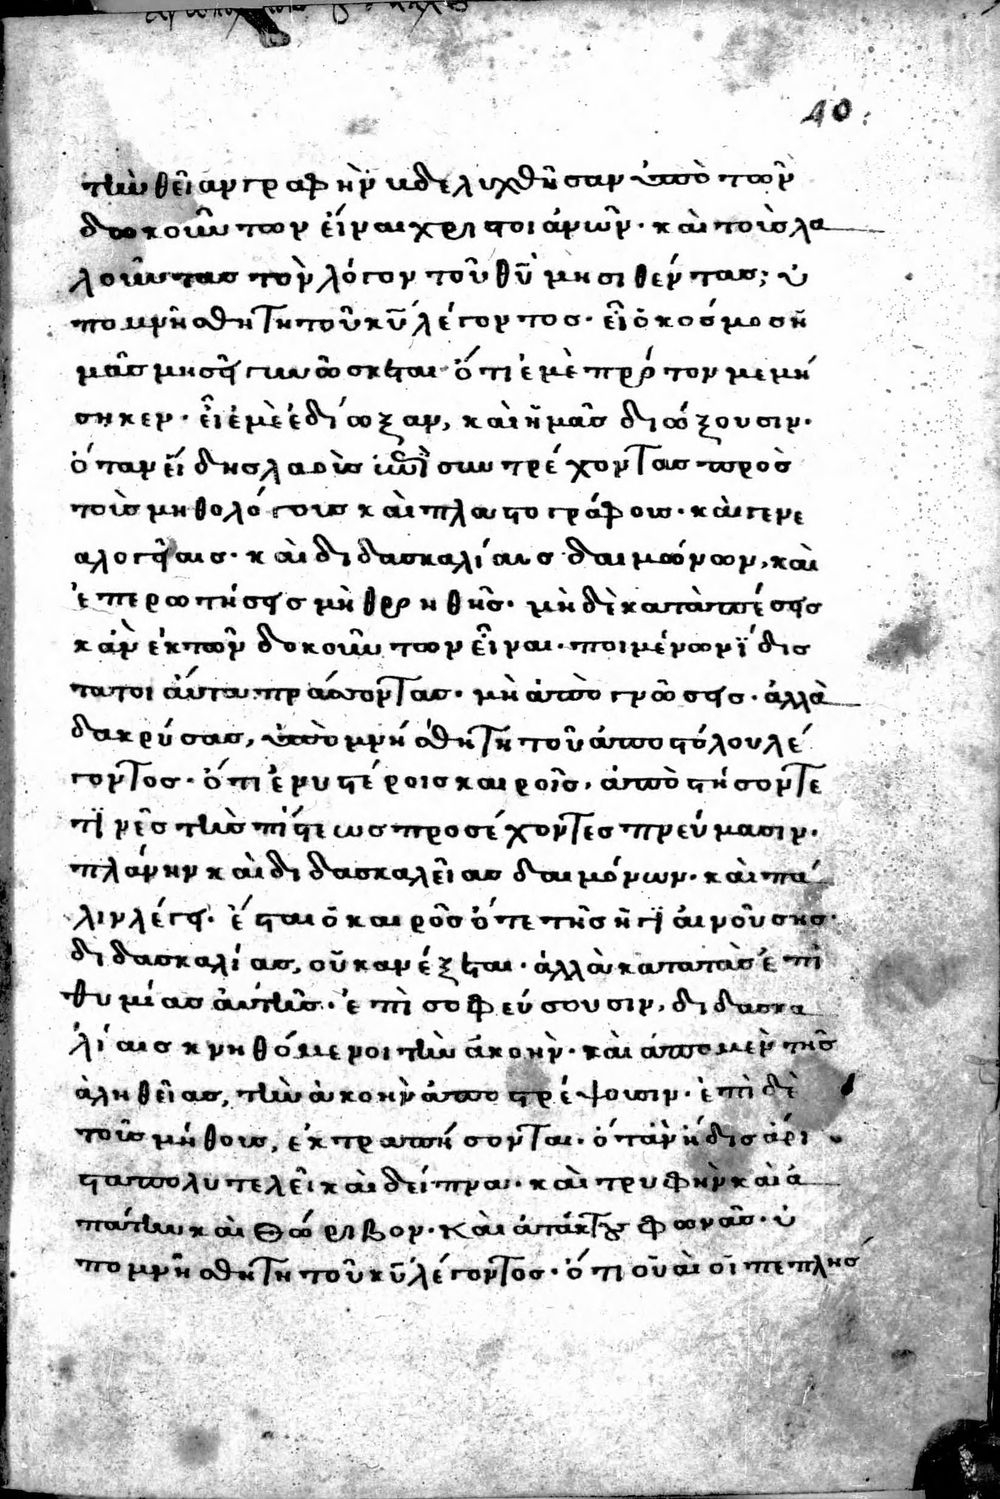 40
τὴν θεῖαν γραφὴν υδελιχθῆσαν ὑπὸ τῶν
δωκοῦντων εἴναι χριστοιάνων· καὶ τοῖσ λα
λοῦντασ τὸν λόγον τοῦ θῦ μησιθέντασ; ὑ
πομνήσθητη τοῦ κῦ λέγοντοσ· εἰ ὁ κόσμοσ ἠ
μᾶσ μησεῖ γινώσκεται ὅτι ἐμὲ πρότον μεμή
σηκεν· εἰ ἐμὲ ἐδίωξαν, καὶ ἠμᾶσ διώξουσιν·
ὅταν εἴδησ λαοὺσ συντρέχοντασ πρὸσ
τοὶσ μηθολόγοισ καὶ πλαστογράφοισ· καὶ γενε
αλογείαισ· καὶ διδασκαλίαισ δαιμόνων, καὶ
ἐπερωτήσεισ μὴ θρηθῆσ· μὴ δὲ καταπέσεισ
κἀν ἐκ τῶν δοκοῦντων εἶναι· ποιμένων ἴδισ
τοῖ αὐτα πράσοντασ· μὴ ἀπὸ γνώσεισ· ἀλλὰ
δακρύσασ, ὑπομνήσθητη τοῦ ἀποστόλου λέ
γοντοσ· ὅτι ἐν υστέροισ καιροῖσ, ἀπὸ στήσοντε
τϊνὲσ τὴσ πίστεωσ προσέχοντεσ πνεύμασιν·
πλάνην καὶ διδασκαλεῖασ δαιμόνων· καὶ πά
λιν λέγει· ἔσται ὁ καιρὸσ ὅτε τῆσ ἠγϊαινοῦσησ·
διδασκαλίασ, οὔκ ανέξεται· ἀλλὰ κατα τὰσ ἐπι
θυμίασ αὐτῆσ· ἐπὶσοφεύσουσιν, διδασκα
λίαισ κνηθόμενοι τὴν ἀκοὴν· καὶ ἀπο μὲν τῆσ
ἀληθεῖασ, τὴν ἀκοὴν ἀποστρέψοισιν· ἐπὶ δὲ
τοῖσ μήθοισ, ἐκτραπήσονται· ὅταν ἠδισ ἀρι
στα πολυτελεῖ καὶ δείπνα· καὶ τρυφὴν καὶ ἀ
πάτην καὶ θόριβον· καὶ ἀτάκτου φωνάσ· ὑ
πομνήσθητη τοῦ κῦ λέγοντοσ· ὅτι οὐαὶ οἰ πεπλησ